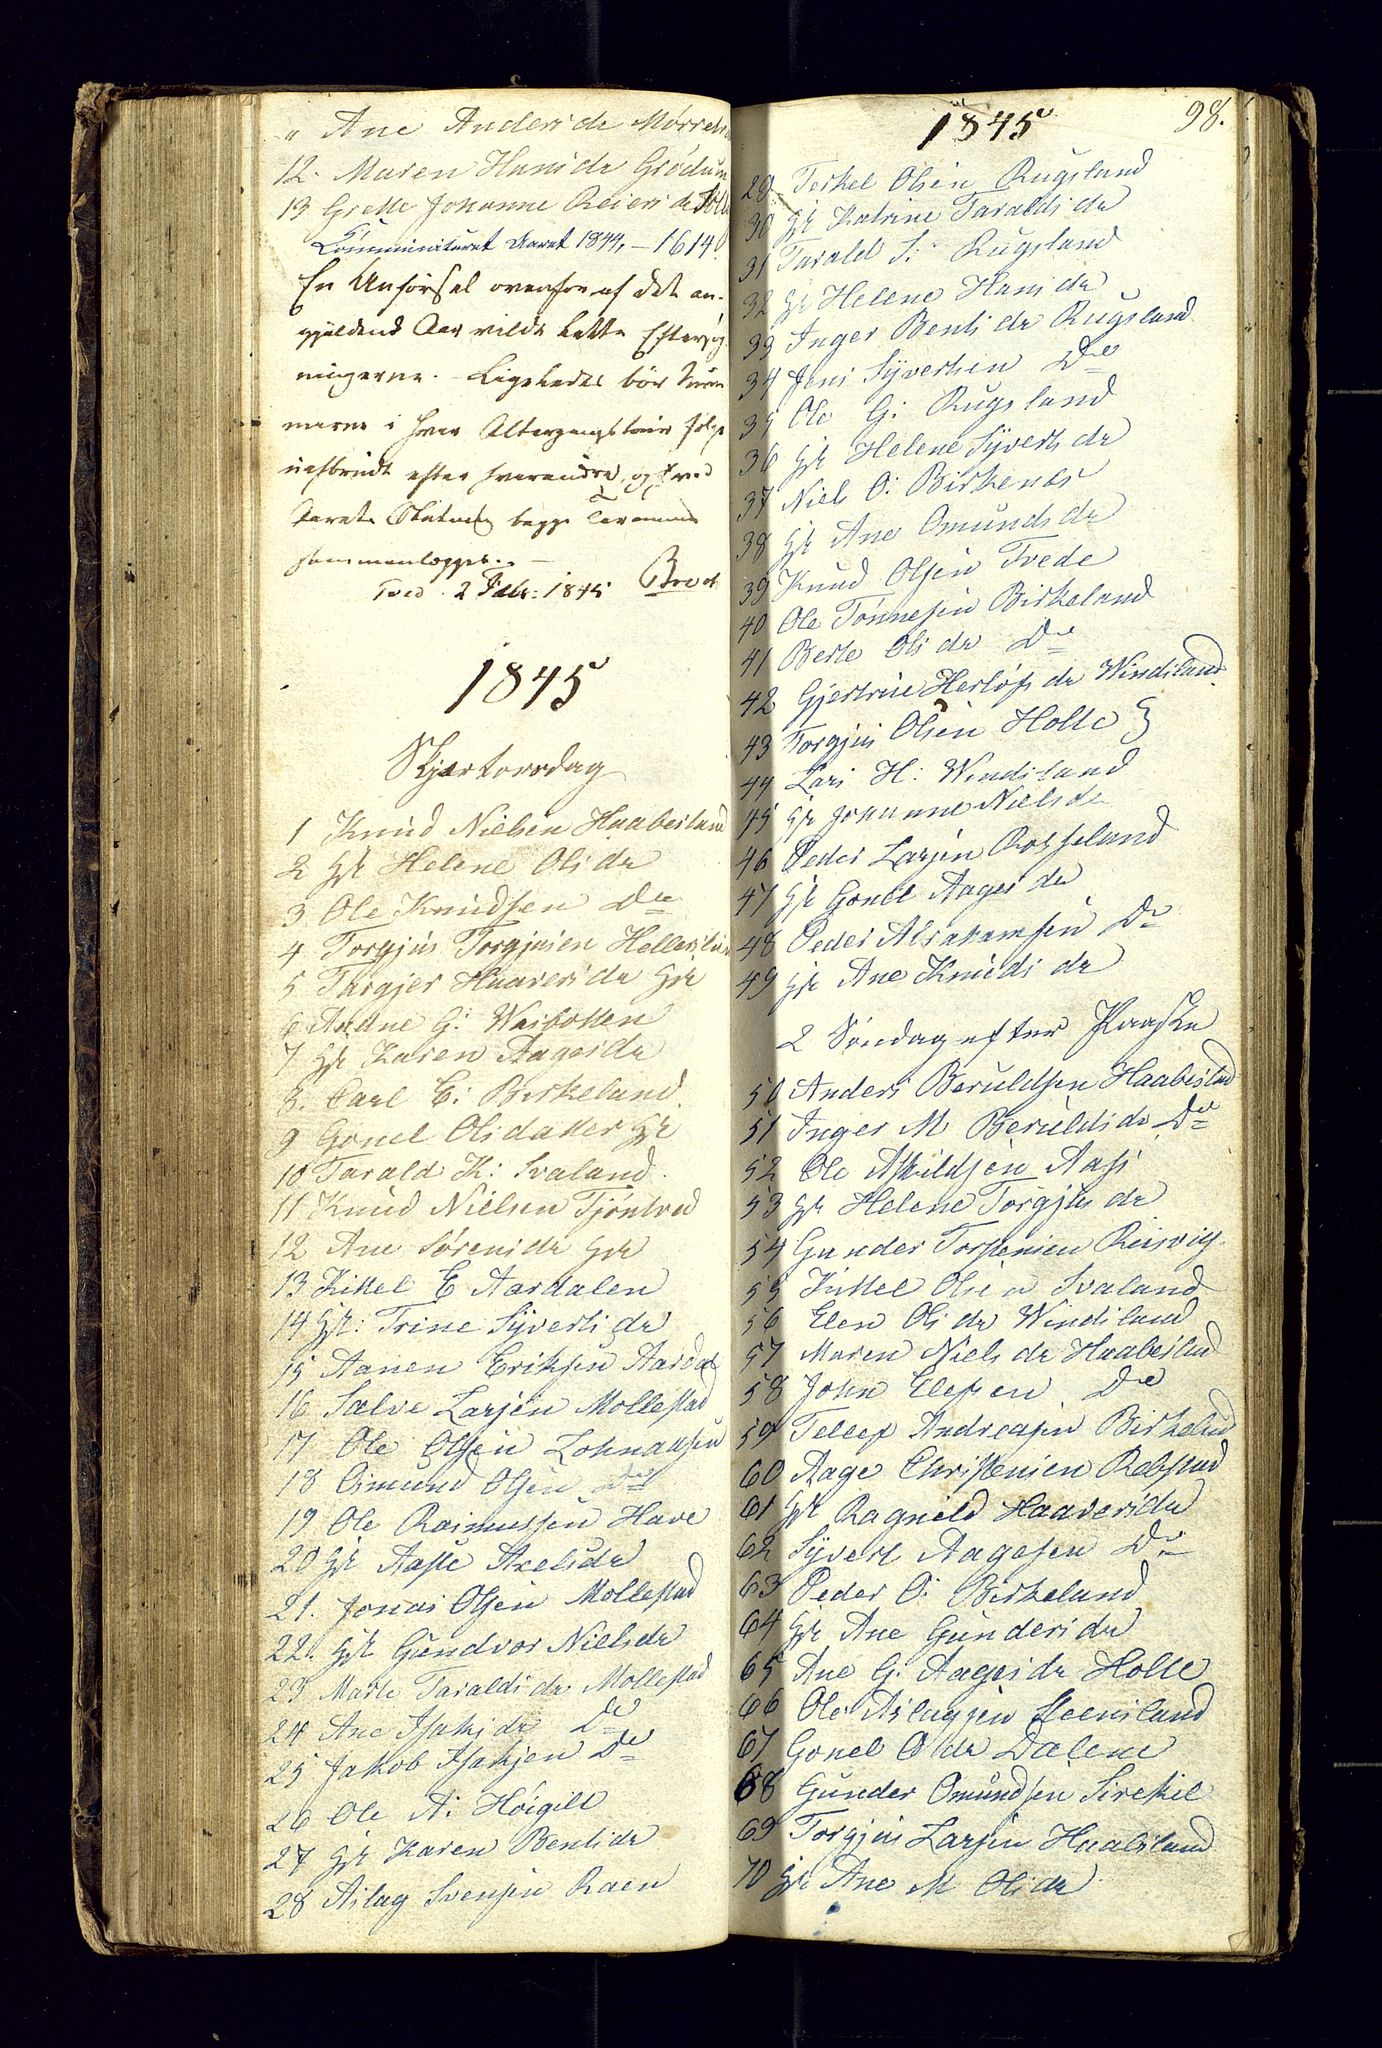 " Ane Andersdr Mørre
12. Maren Hansdr Grødum
13 Grette Johanne Reiersdr
Communiceret Aaret 1844, – 1614.
En Anførsel ovenfor af det an-
gjældende Aar vilde lette Eftersøg-
ningerne. – Ligeledes bør Num
merne i hver Altergangstour følge
uafbrudt efter hverandre, og ved
Aarets Slutning begge
sammenlægges. –
Tved. 2 Febr: 1845
1845
Skjærtorsdag
1 Knud Nielsen Haabesland
2 Hr Helene Olsdr
3 Ole Knudsen Do
4 Torgjus Torgjusen Hellersland
5 Targjer Haaversdr Hr
6 Aadne G: Wasbotten
7 Hr Karen Aagesdr
8. Carl C: Birkeland
9 Gonel Olsdatter Hr
10 Tarald K: Svaland
11 Knud Nielsen Tjøntved
12 Ane Sørensdr Hr
13 Kittel E Aardalen
14 Hr: Trine Syvertsdr
15 Aanen Eriksen Aardal
16 Salve Larsen Mollestad
17 Ole Olsen
18 Osmund Olsen Do
19 Ole Rasmussen Have
20 Hr Aase Axelsdr
21. Jonas Olsen Mollestad
22. Hr Gundvor Nielsdr
23 Marte Taraldsdr Mollestad
24 Ane Isaksdr Do
25 Jakob Isaksen Do
26 Ole A: Høigilt
27 Hr Karen Bentsdr
28 Aslag Svensen Raen
98.
1845
29 Terkel Olsen Rugsland
30 Hr Katrine Taraldsdr
31 Tarald S: Rugsland
32 Hr Helene Hansdr
33 Inger Bentsdr Rugsland
34 Jens Syvertsen Do
35 Ole G: Rugsland
36 Hr Helene Syvertsdr
37 Niels O: Birkenes
38 Hr Ane Omundsdr
39 Knud Olsen Tvede
40 Ole Tønnesen Birkeland
41 Berte Olsdr Do
42 Gjertrue Herløfsdr Windsland
43 Torgjus Olsen Holte }
44 Lars H: Windsland
45 Hr Johanne Nielsdr
46 Peder Larsen Rosseland
47 Hr Gonel Aagesdr
48 Peder Abrahamsen Do
49 Hr Ane Knudsdr
2 Søndag efter Paaske
50 Anders Beruldsen Haabesland
51 Inger M Beruldsdr Do
52 Ole Askildsen Aas
53 Hr Helene Torgjusdr
54 Gunder Torstensen Reisvig
55 Kittel Olsen Svaland
56 Elen Olsdr Windsland
57 Maren Nielsdr Haabesland
58 John Elefsen Do
59 Tellef Andreasen Birkeland
60 Aage Christensen Robstad
61 Hr Ragnild Haaversdr
62 Syvert Aagesen Do
63 Peder O: Birkeland
64 Hr Ane Gundersdr
65 Ane G: Aagesdr Holte
66 Ole Aslagsen Steensland
67 Gonel O dr Dalene
68 Gunder Omundsen Sirekil
69 Torgjus Larsen Haabesland
70 Hr Ane M Olsdr